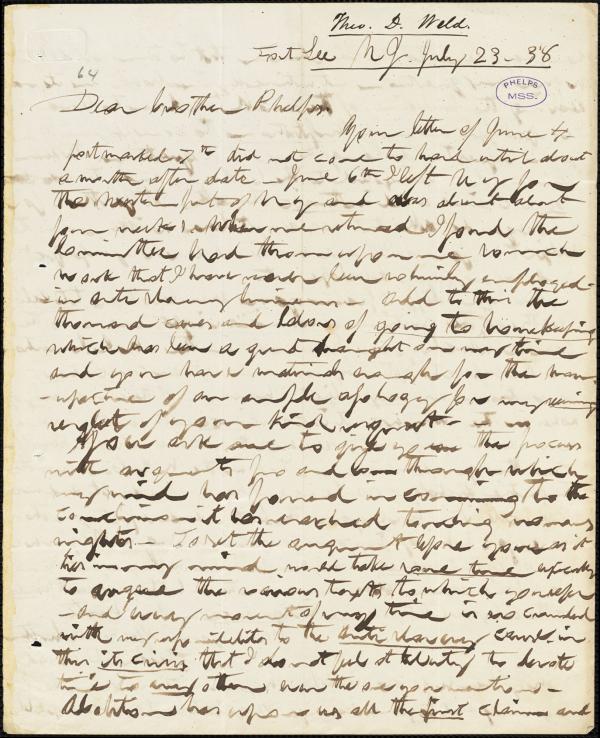 Theo. D. Weld.
Fort Lee N J. July 23 - 38
64
PHELPS
MSS.
Dear brother Phelps.
Your letter of June 4
postmarked 7th did not come to hand until about
a month after date - June 6th I left N Y for
the western part of N Y and was absent about
four weeks. When we returned I found the
Committee had thrown upon me so much
work that I have never been so busily employed
in anti slavery business - Add to this the
thousand cares and labors of going to housekeeping
which has been a great draught on my time
and you have materials enough for the man-
-ufacture of an ample apology for my seeming
neglect of your kind request -
You ask me to give you the process
with arguments pro and con through which
my mind has passed in coming to the
conclusions it has reached touching womans
rights - To set the argument before you as it
lies in my mind would take some time especially
to argue the various to which you refer
- and every moment of my time is so crowded
with my responsibilities to the anti slavery cause in
this its crisis that I do not feel at liberty to devote
time to any other even the
Abolition has upon us all the first claim and